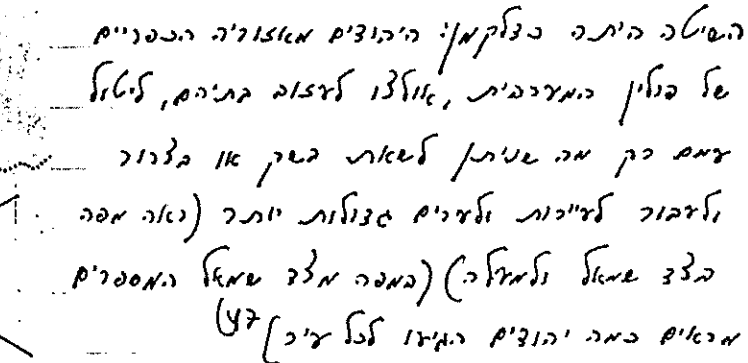 השיטה היתה כדלקמן: היהודים מאזוריה הכפריים
של פולין המערבית, אולצו לעזוב בתיהם, ליטול
עמם רק מה שניתן לשאת בשק או בצרור
ולעבור לעיירות ולערים גדולות יותר (ראה מפה
בצד שמאל ולמעלה) (במפה מצד שמאל המספרים
מראים כמה יהודים הגיעו לכל עיר)